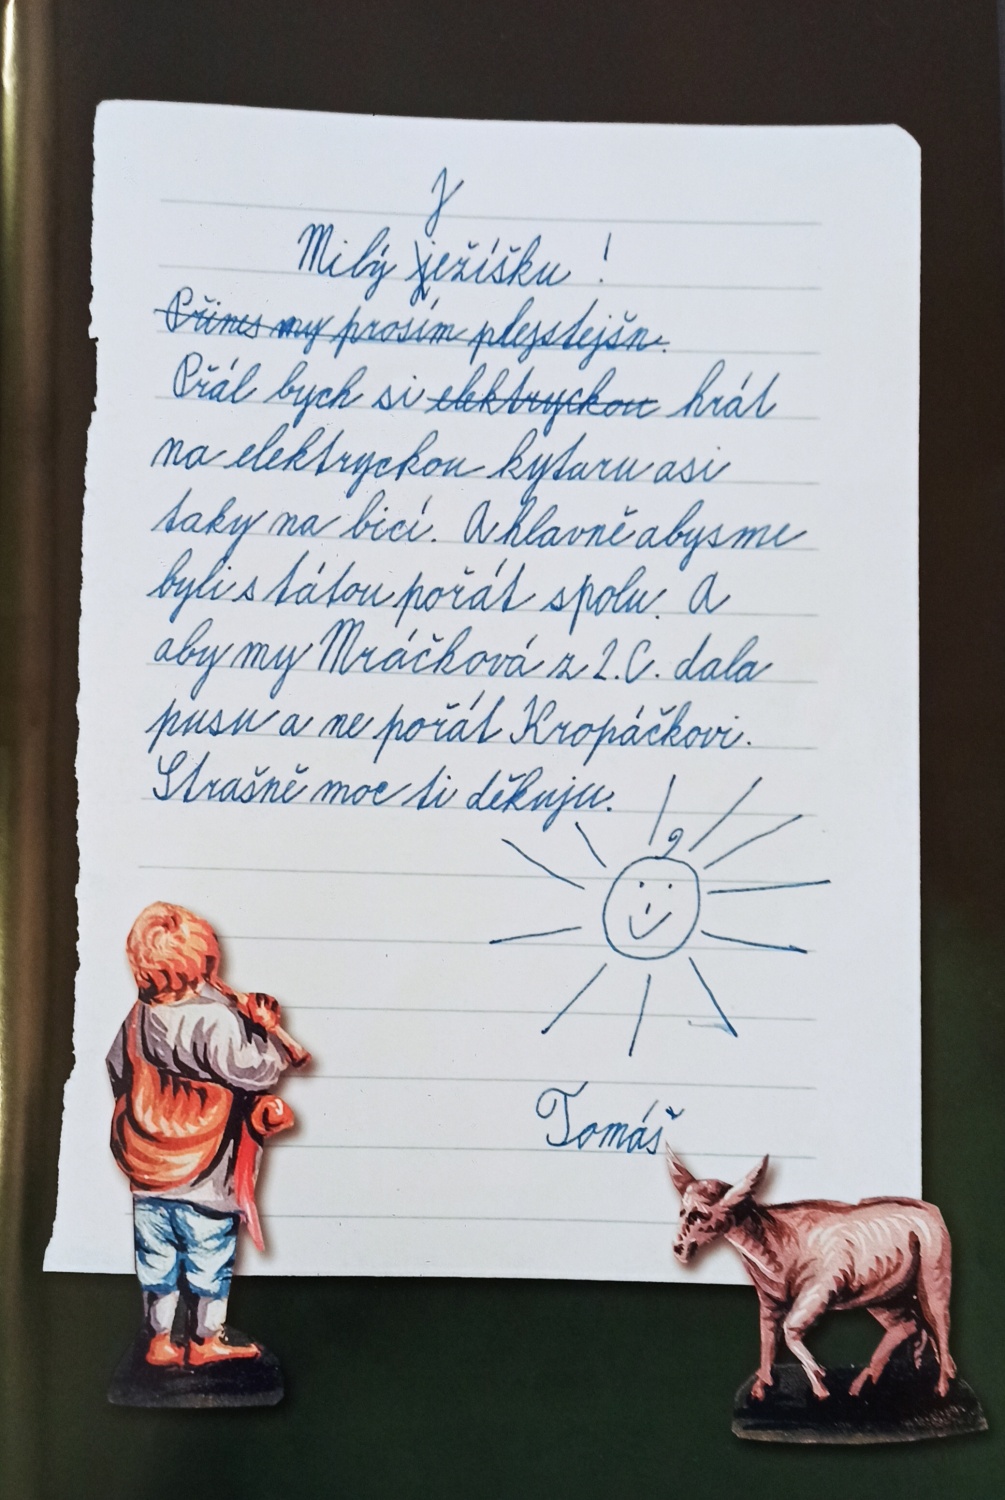 J
Milý ježíšku!
Přines my prosím plejstejšn.
Přál bych si elektryckou hrát
na elektryckou kytaru asi
taky na bicí. A hlavně abysme
byli s tátou pořát spolu. A
aby my Mráčková z 2.C. dala
pusu a ne pořát Kropáčkovi.
Strašně moc ti děkuju.
Tomáš